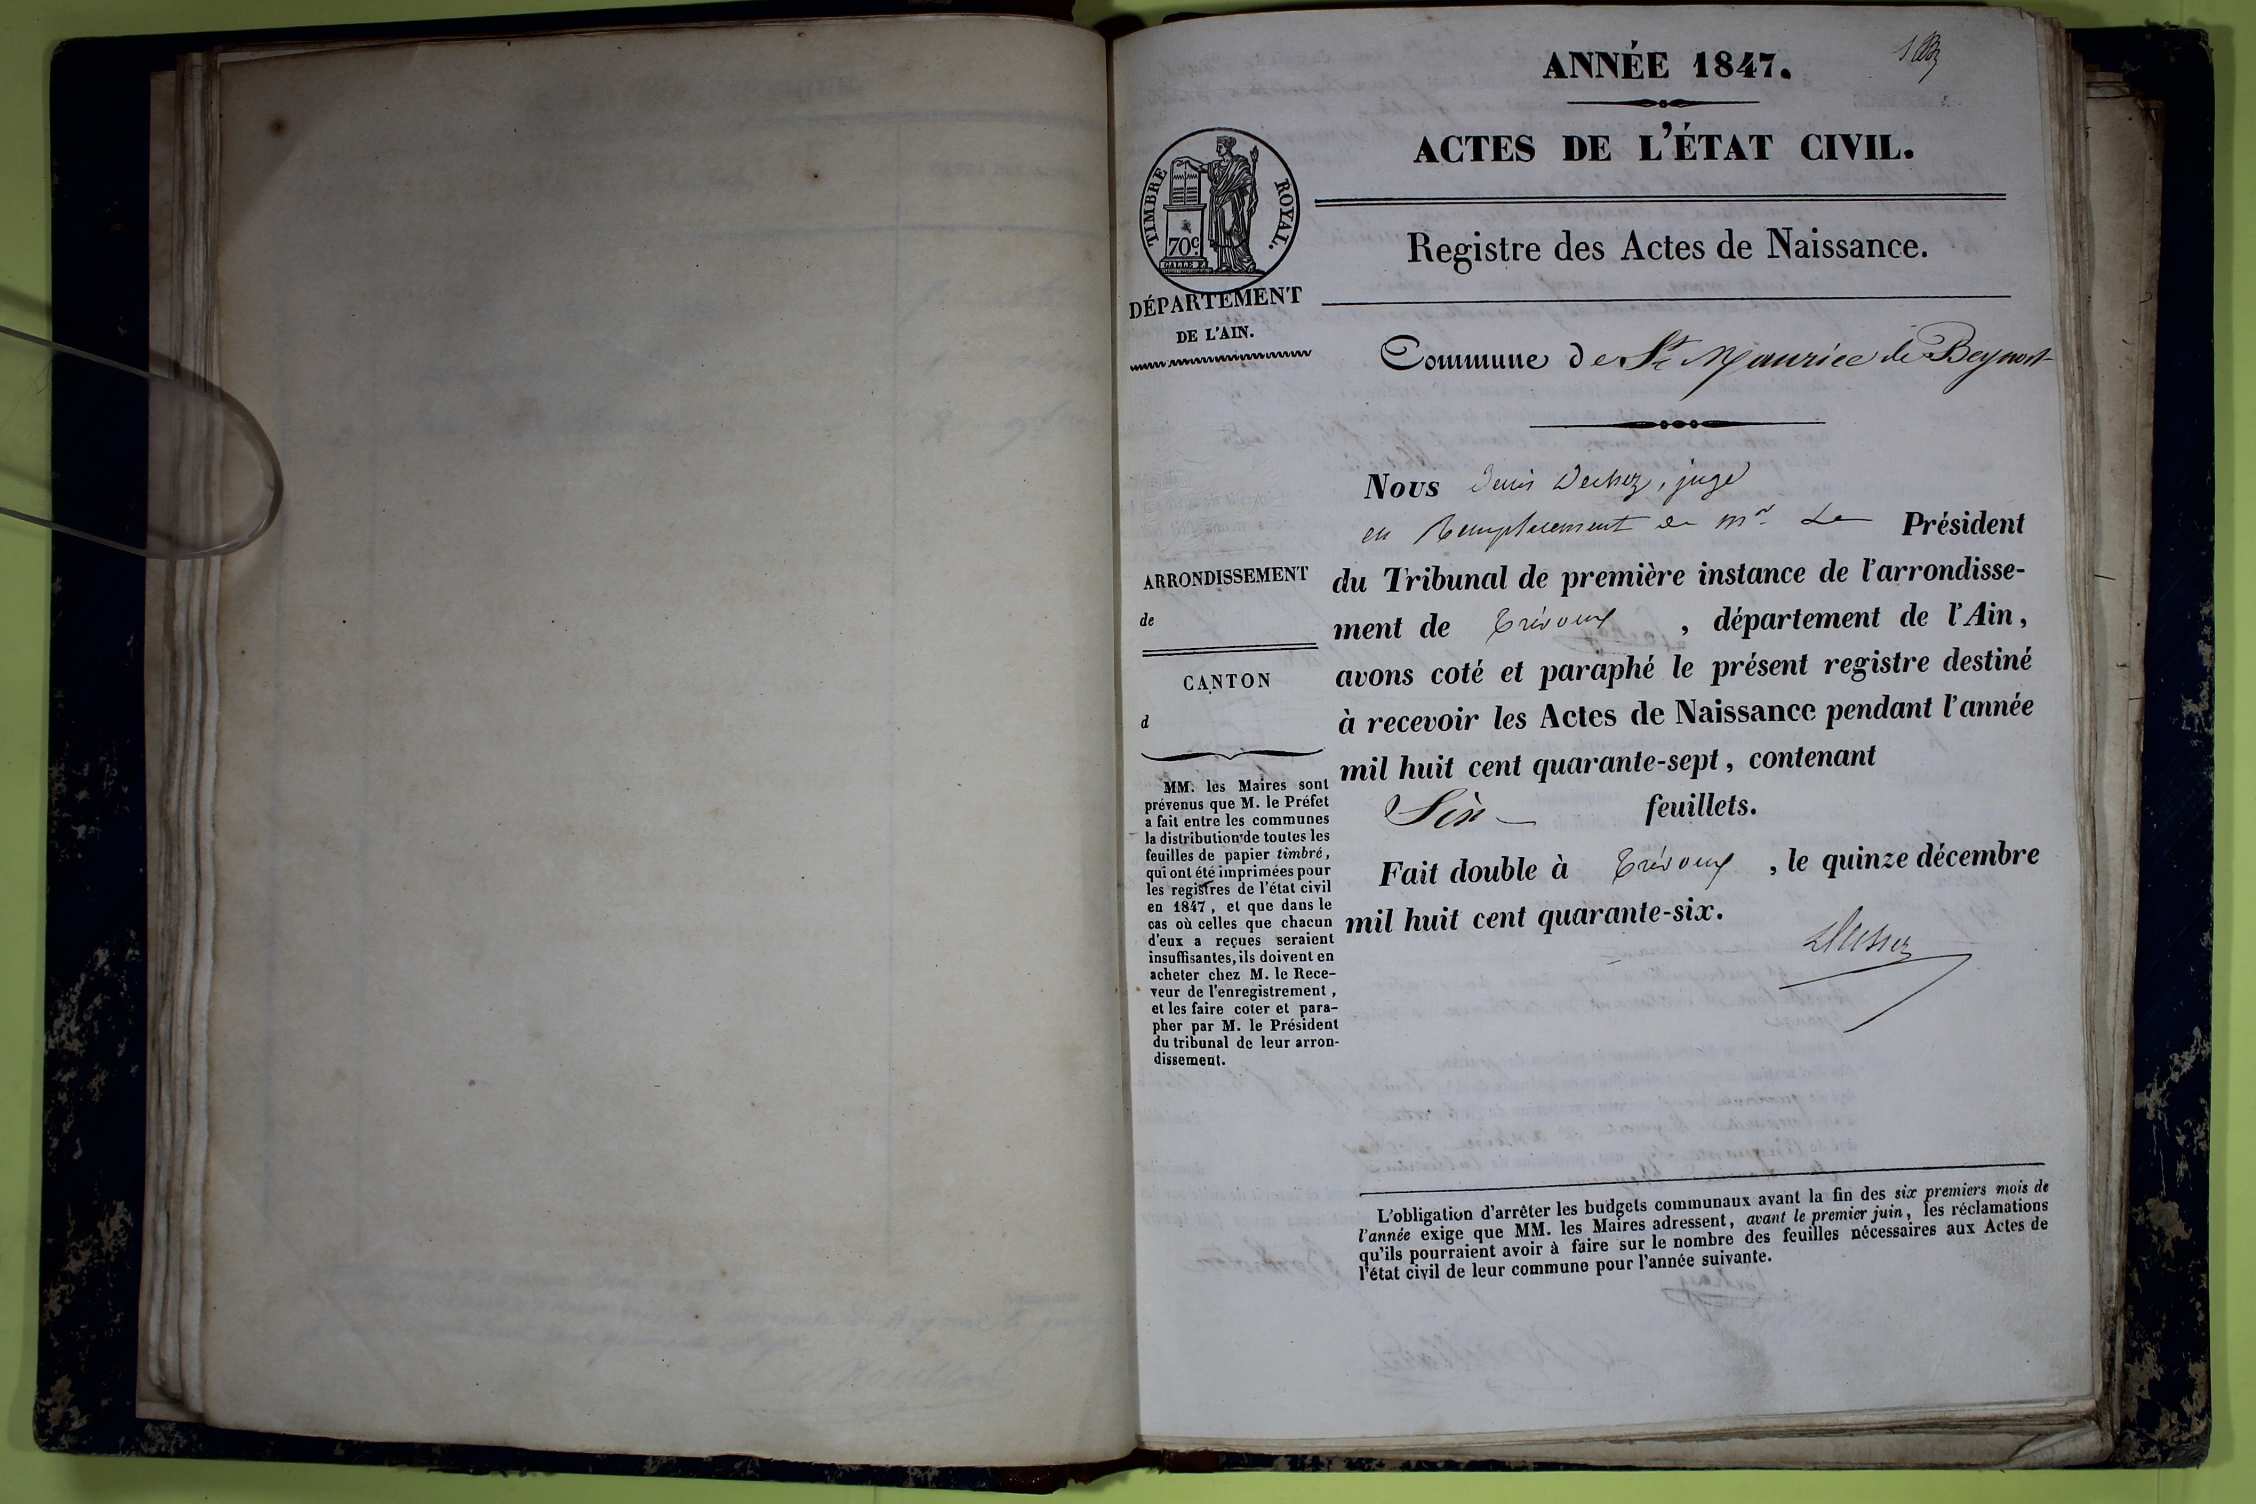 ANNÉE 1847.
ACTES DE L'ÉTAT CIVIL.
TIMBRE ROYAL.
70 c.
GALLE F.
Registre des Actes de Naissance.
DÉPARTEMENT
DE L'AIN.
Commune de St Maurice de Beynost
Nous Denis juge
en Remplacement de Mr. Le Président
ARRONDISSEMENT
de
du Tribunal de première instance de l'arrondisse-
ment de Trévoux, département de l'Ain,
avons coté et paraphé le présent registre destiné
à recevoir les Actes de Naissance pendant l'année
mil huit cent quarante-sept, contenant
Six feuillets.
Fait double à Trévoux, le quinze décembre
mil huit cent quarante-six.
CANTON
d
MM. les Maires sont
prévenus que M. le Préfet
a fait entre les communes
la distribution de toutes les
feuilles de papier timbré,
qui ont été imprimées pour
les registres de l'état civil
en 1847, et que dans le
cas où celles que chacun
d'eux a reçues seraient
insuffisantes, ils doivent en
acheter chez M. le Rece-
veur de l'enregistrement,
et les faire coter et para-
pher par M. le Président
du tribunal de leur arron-
dissement.
L'obligation d'arrêter les budgets communaux avant la fin des six premiers mois de
l'année exige que MM. les Maires adressent, avant le premier juin, les réclamations
qu'ils pourraient avoir à faire sur le nombre des feuilles nécessaires aux Actes de
l'état civil de leur commune pour l'année suivante.